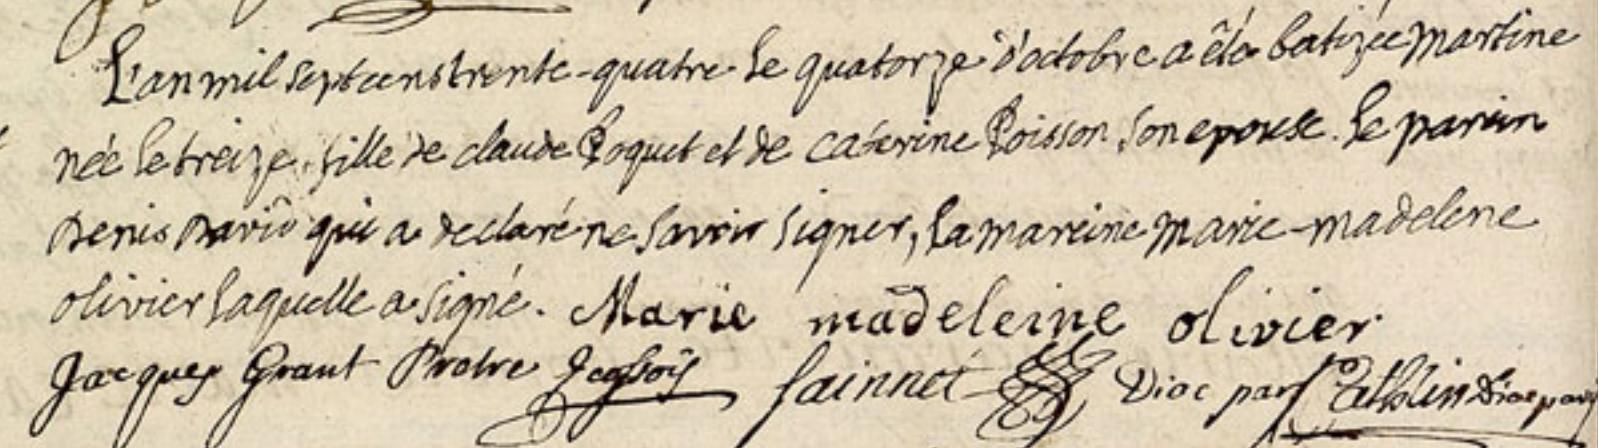 L'an mil septcens trente-quatre le quatorze d'octobre a été batizée martine
née le treize, fille de claude Poquet et de caterine Poisson son epouse. le parein
Denis David qui a declaré ne savoir signer, la mareine marie-madelene
olivier laquelle a signé. Marie madeleine olivier
Jacques Graut Sainnet Diac par Diac par